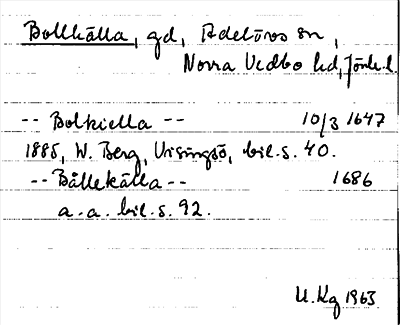 Bollkälla, gd, Adelövs sn,
Norra Vedbo hd, Jönk. l.
-- Bolkiella -- 10/3 1647
1885, W. Berg, Visingsö, bil. s. 40.
-- Bållekälla -- 1686
a. a. bil. s. 92.
U. Kg 1963